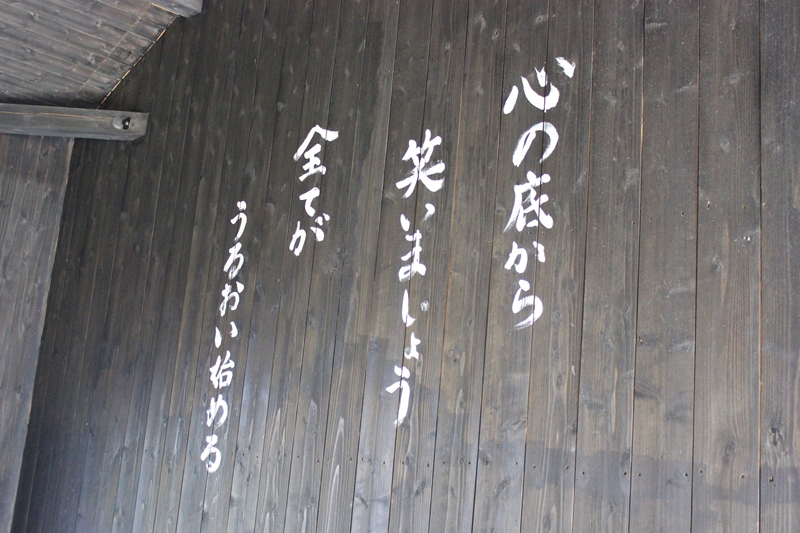 心の底から
笑いましょう
全てが
うるおい始める